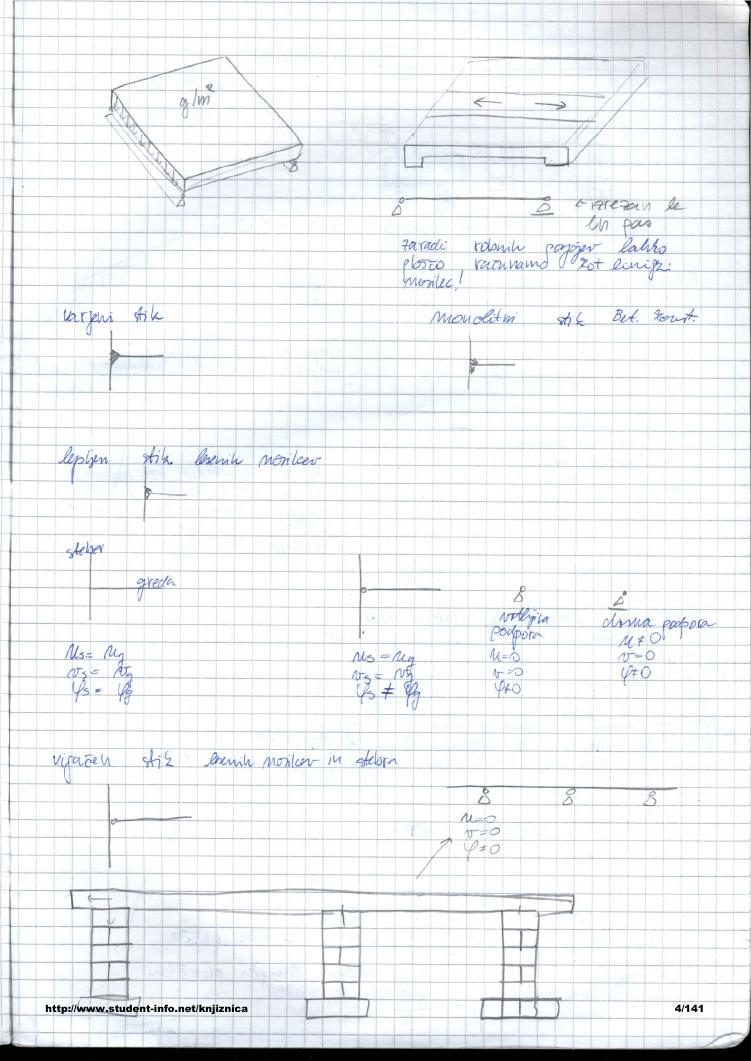 g/m²
← izrezan le
lin pas
zaradi robnih pogojev lahko
ploščo računamo kot linijski
nosilec!
varjeni stik
monolitni stik Bet. konst.
lepljen stik lesenih nosilcev
steber
greda
us = ug
vs = vg
φs = φg
us = ug
vs = vg
φs ≠ φg
vrtljiva
podpora
u=0
v=0
φ≠0
drsna podpora
u≠0
v=0
φ≠0
vijačen stik lesenih nosilcev in stebra
u=0
v=0
φ≠0
http://www.student-info.net/knjiznica
4/141